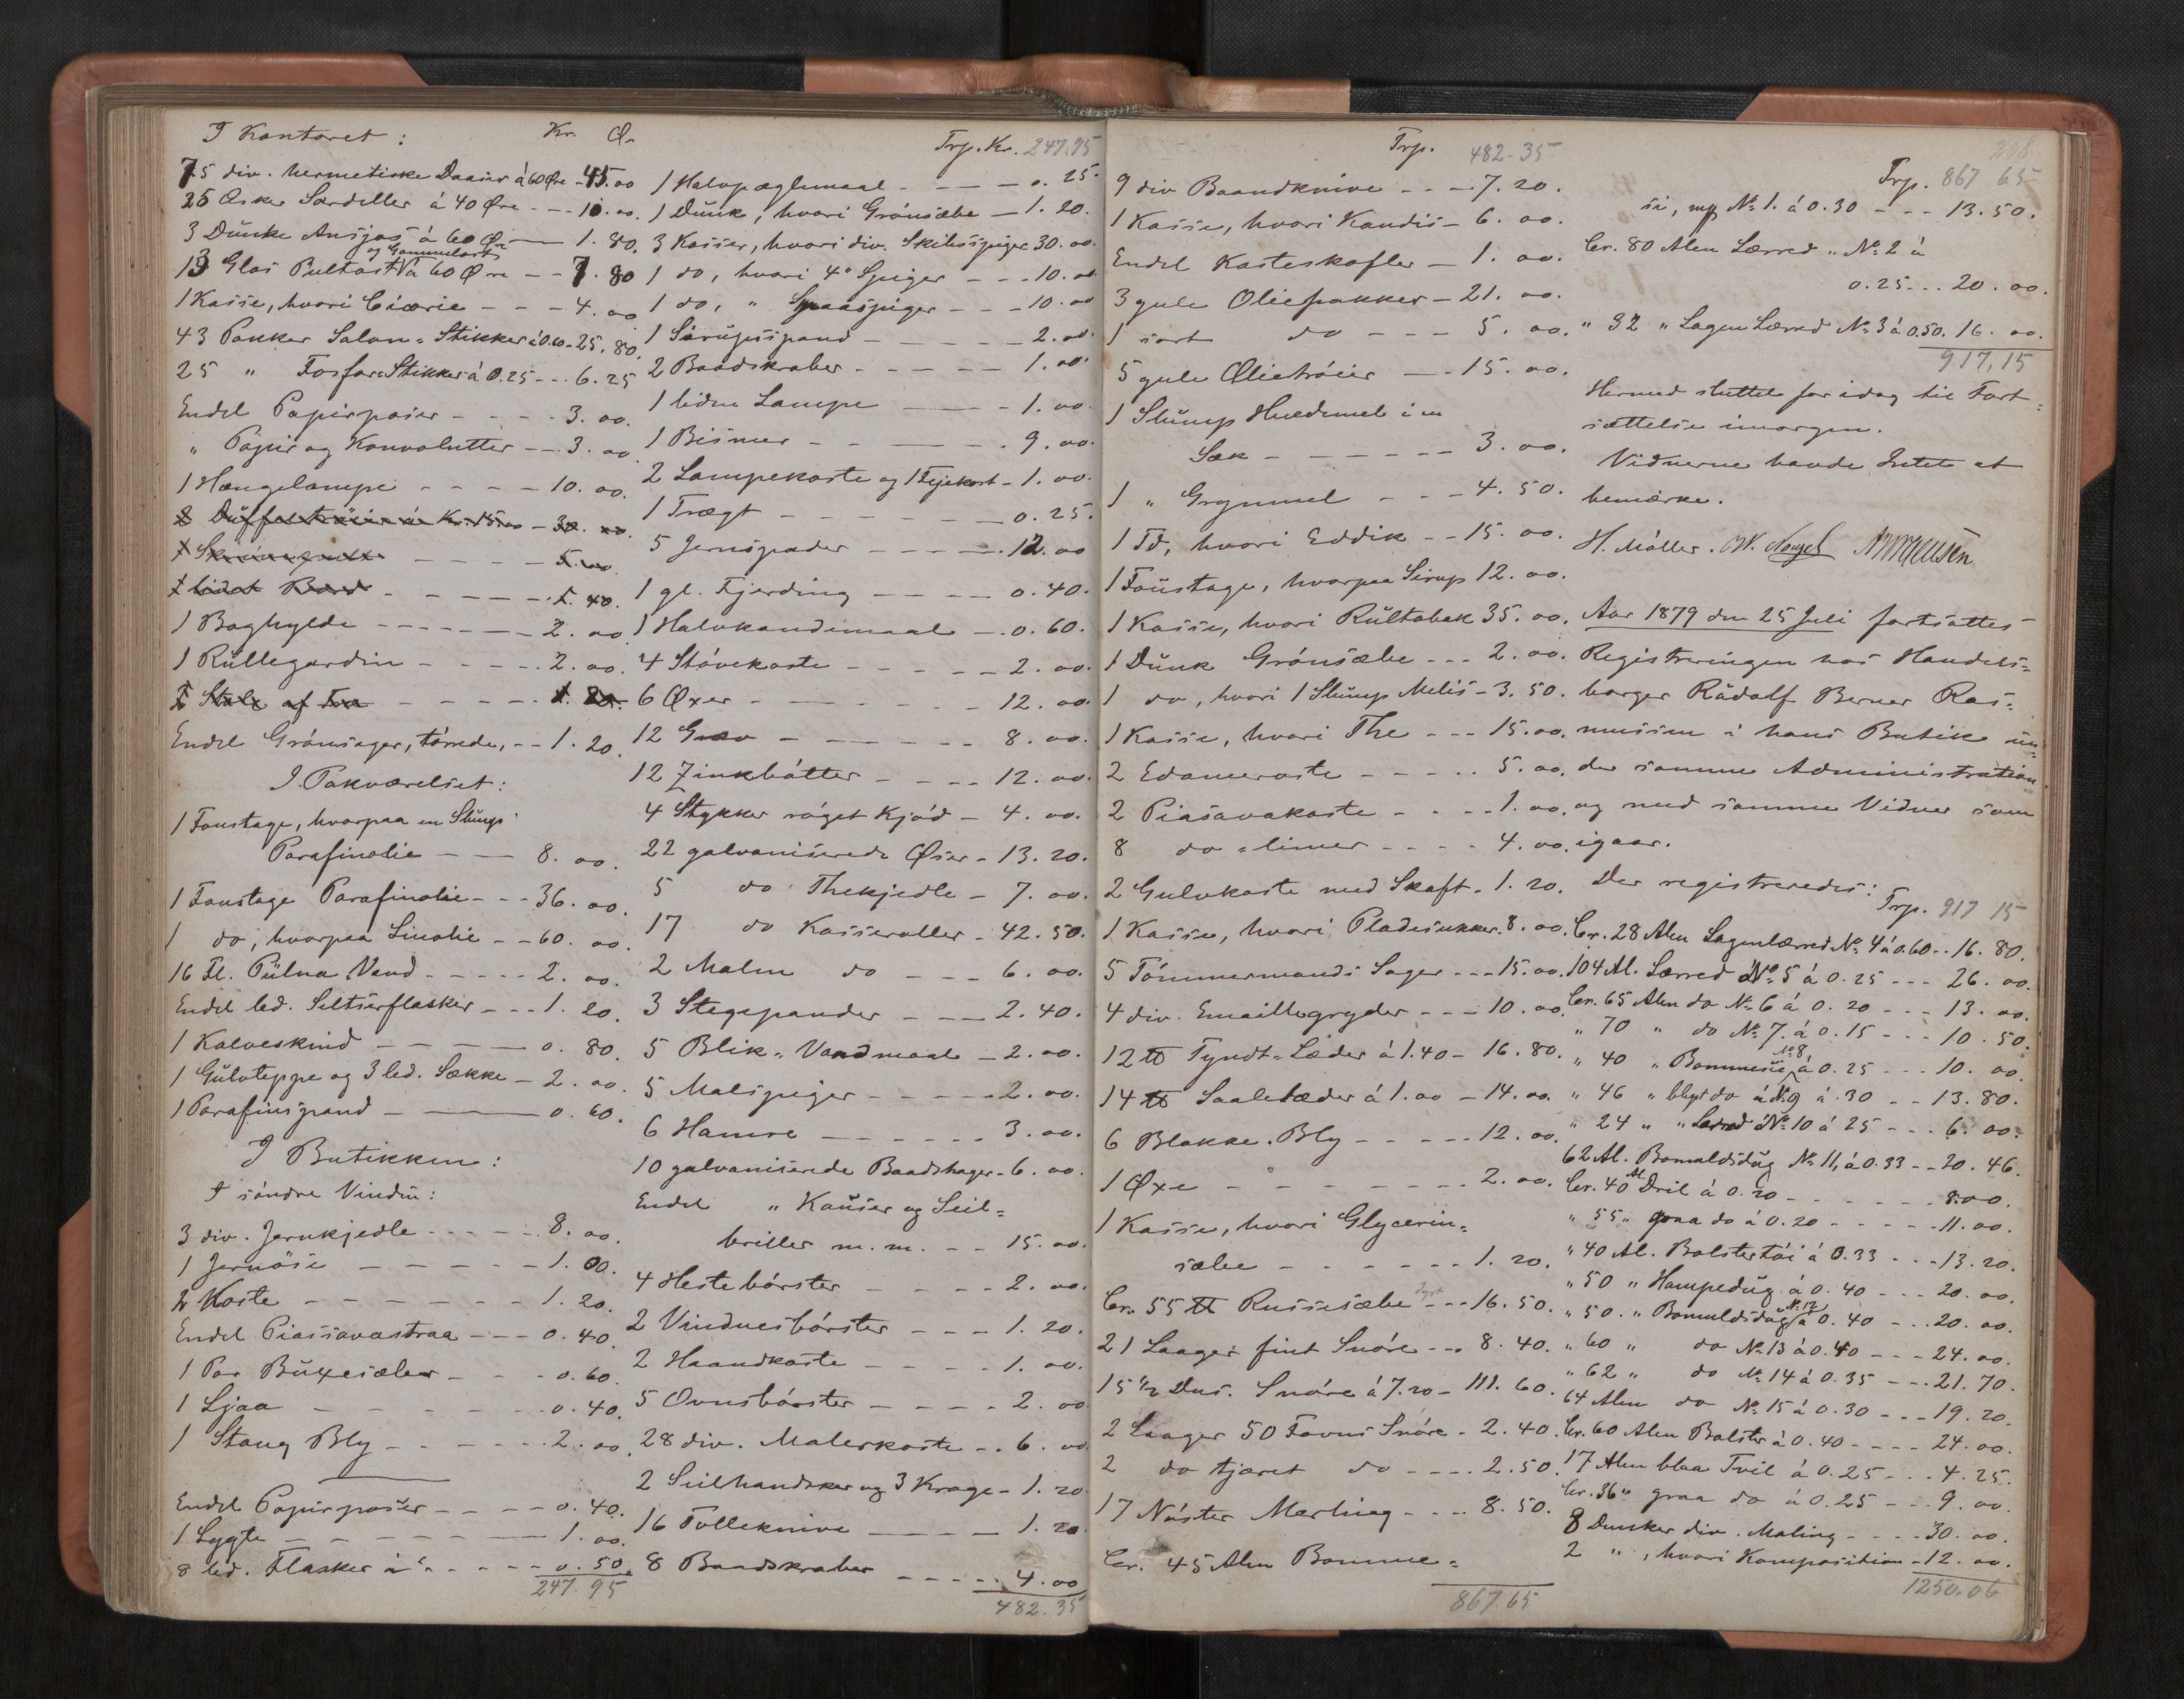 I Kontoret: Kr. Ø.
75 div. hermetiske Daaser á 60 Øre - 45.00
25 Æsker Sardeller á 40 Øre - - 10.00.
3 Dunke Ansjos á 60 Øre - 1.80.
og Gammelost
13 Glas Pultost á 60 Øre - - 7.80
1 Kasse, hvori Cicorie - - - 4.00
43 Pakker Salon-Stikker á 0.60 - 25.80.
25 " Fosfor-Stikker á 0.25 - - 6.25
Endel Papirposer - - - - 3.00.
" Papir og Konvolutter - - 3.00
1 Hængelampe - - - - 10.00.
2 Duffelstrøier á Kr. 15.00 - 30.00.
1 - - - - 5.00.
1 lidet Bord - - - - - 1.40.
1 Boghylde - - - - - - 2.00
1 Rullegardin - - - - - 2.00.
2 Stole af Træ - - - - - 1.20.
Endel Grønsager, tørrede, - - 1.20.
I Pakværelset:
1 Foustage, hvorpaa en Slump
Parafinolie - - - 8.00.
1 Foustage Parafinolie - - - 36.00.
1 do, hvorpaa Linolie - - 60.00.
16 Fl. Pülna Vand - - - - - 2.00.
Endel led. Seltserflasker - - - 1.20.
1 Kalveskind - - - - - 0.80.
1 Gulvteppe og 3 led. Sække - 2.00.
1 Parafinspand - - - 0.60.
I Butikken:
I søndre Vindu:
3 div. Jernkjedle - - - - - 8.00.
1 Jernøse - - - - - 1.00.
2 Koste - - - - - - 1.20.
Endel Piassavastraa - - - 0.40.
1 Par Buxesæler - - - 0.60.
1 Ljaa - - - - - - - 0.40.
1 Stang Bly - - - - - - 2.00.
Endel Papirposer - - - - 0.40.
1 Lygte - - - - - - - 1.00.
8 led. Flasker - - - - - 0.50.
247.95
Trp. Kr. 247.95
1 Halvpæglemaal - - - - 0.25.
1 Dunk, hvori Grønsæbe - 1.20.
3 Kasser, hvori div. Skibsspiger 30.00.
1 do, hvori 4" Spiger - - - 10.00
1 do, " Smaaspiger - - - 10.00
1 Sirupsspand - - - - - 2.00.
2 Baadskraber - - - - - 1.00.
1 liden Lampe - - - 1.00.
1 Bismer - - - - - 9.00.
2 Lampekoste og 1 Fejekost - 1.00.
1 Tragt - - - - - - - 0.25.
5 Jernspader - - - - - 12.00
1 gl. Fjerding - - - - 0.40.
1 Halvkandemaal - - 0.60.
4 Støvekoste - - - - - 2.00.
6 Øxer - - - - - - 12.00.
12 Grev - - - - - - 8.00.
12 Zinkbøtter - - - - 12.00.
4 Stykker røget Kjød - 4.00.
22 galvaniserede Øser - 13.20.
5 do Thekjedle - 7.00.
17 do Kasseroller - 42.50.
2 Malm do - - - 6.00.
3 Stegepander - - - 2.40.
5 Blik-Vandmaal - 2.00.
5 Malspiger - - - - - 2.00.
6 Hamre - - - - - - 3.00.
10 galvaniserede Baadshager - 6.00.
Endel " Kauser og Seil-
briller m.m. - - 15.00.
4 Hestebørster - - - - 2.00.
2 Vinduesbørster - - - 1.20.
2 Haandkoste - - - - - 1.00.
5 Ovnsbørster - - - - 2.00
28 div. Malerkoste - - 6.00
2 Seilhandsker og 3 Krage - 1.20
16 Tolleknive - - - - 1.20
8 Baadskraber - - - - - 4.00
482.35
Trp. 482-35
9 div Baandknive - - - 7.20.
1 Kasse, hvori Kandis - 6.00.
Endel Kasteskofler - 1.00.
3 gule Oliefrakker - 21.00.
1 sort do - - - 5.00.
5 gule Olietrøier - - 15.00.
1 Slump Hvedemel i en
Sæk - - - - - - 3.00.
1 " Grynmel - - - 4.50.
1 Td, hvori Eddik - - 15.00.
1 Foustage, hvorpaa Sirup 12.00.
1 Kasse, hvori Rultobak 35.00.
1 Dunk Grønsæbe - - - 2.00.
1 do, hvori 1 Slump Melis - 3.50.
1 Kasse, hvori The - - - 15.00.
2 Edameroste - - - - - 5.00.
2 Piasavakoste - - - - 1.00.
8 do-limer - - - - 4.00.
2 Gulvkoste med Skaft - 1.20.
1 Kasse, hvori Pladesukker. 8.00.
5 Tømmermands Sager - - - 15.00.
4 div. Emaillegryder - - - 10.00.
12 ℔ Tyndt-Læder á 1.40 - 16.80.
14 ℔ Saalelæder á 1.00 - 14.00.
6 Blokke Bly - - - - - 12.00.
1 Øxe - - - - - - - 2.00.
1 Kasse, hvori Glycerin-
sæbe - - - - - - 1.20.
Cr. 55 ℔ Russesæbe - - - 16.50.
21 Laager fint Snøre - - - 8.40.
15 1/2 Dus. Snøre á 7.20 - 111.60.
2 Laager 50 Favns Snøre - 2.40.
2 do tjæret do - - - - 2.50.
17 Nøster Merling - - - - 8.50.
Cr. 45 Alen Bomme-
867.65
208
Trp. 867 65
si, No 1. á 0.30 - - - 13.50.
Cr. 80 Alen Lærred " No 2 á
0.25 - - - 20.00.
" 32 " Lagen Lærred No 3 á 0.50. 16.00.
917,15
Hermed sluttet for idag til Fort-
sættelse imorgen.
Vidnerne havde Intet at
bemærke.
H. Møller.
Aar 1879 den 25 Juli fortsattes
Registreringen hos Handels-
borger Rudolf Berner Ras-
mussen i hans Butik un-
der samme Administration
og med samme Vidner som
igaar.
Der registreredes:
Trp. 917 15
Cr. 28 Alen Lagenlærred No 4 á 0.60 - - 16.80.
104 Al. Lærred No 5 á 0.25 - - - 26.00.
Cr. 65 Alen do No 6 á 0.20 - - - 13.00.
" 70 " do No 7. á 0.15 - - - 10.50.
No 8
" 40 " Bommesie á 0.25 - - - 10.00.
" 46 " blegt do No 9 á 30 - - 13.80.
" 24 " " Lærred No 10 á 25 - - - 6.00.
62 Al. Bomuldsdug No 11, á 0.33 - - 20.46.
Cr. 40 Al Dril á 0.20 - - - - - - 8.00.
" 55 " graa do á 0.20 - - - - - 11.00.
" 40 Al. Bolstertøi á 0.33 - - - 13.20.
" 50 " Hampedug á 0.40 - - - 20.00.
No 12
" 50. " Bomuldsdug á 0.40 - - - 20.00.
" 60 " do No 13 á 0.40 - - - 24.00.
" 62 " do No 14 á 0.35 - - - 21.70.
64 Alen do No 15 á 0.30 - - - 19.20.
Cr. 60 Alen Bolster á 0.40 - - - - 24.00.
17 Alen blaa Tvil á 0.25 - - - 4.25.
Cr. 36 " graa do á 0.25 - - - 9.00.
8 Dunker div. Maling - - - - 30.00.
2 " , hvori Komposition - 12.00.
1250.06